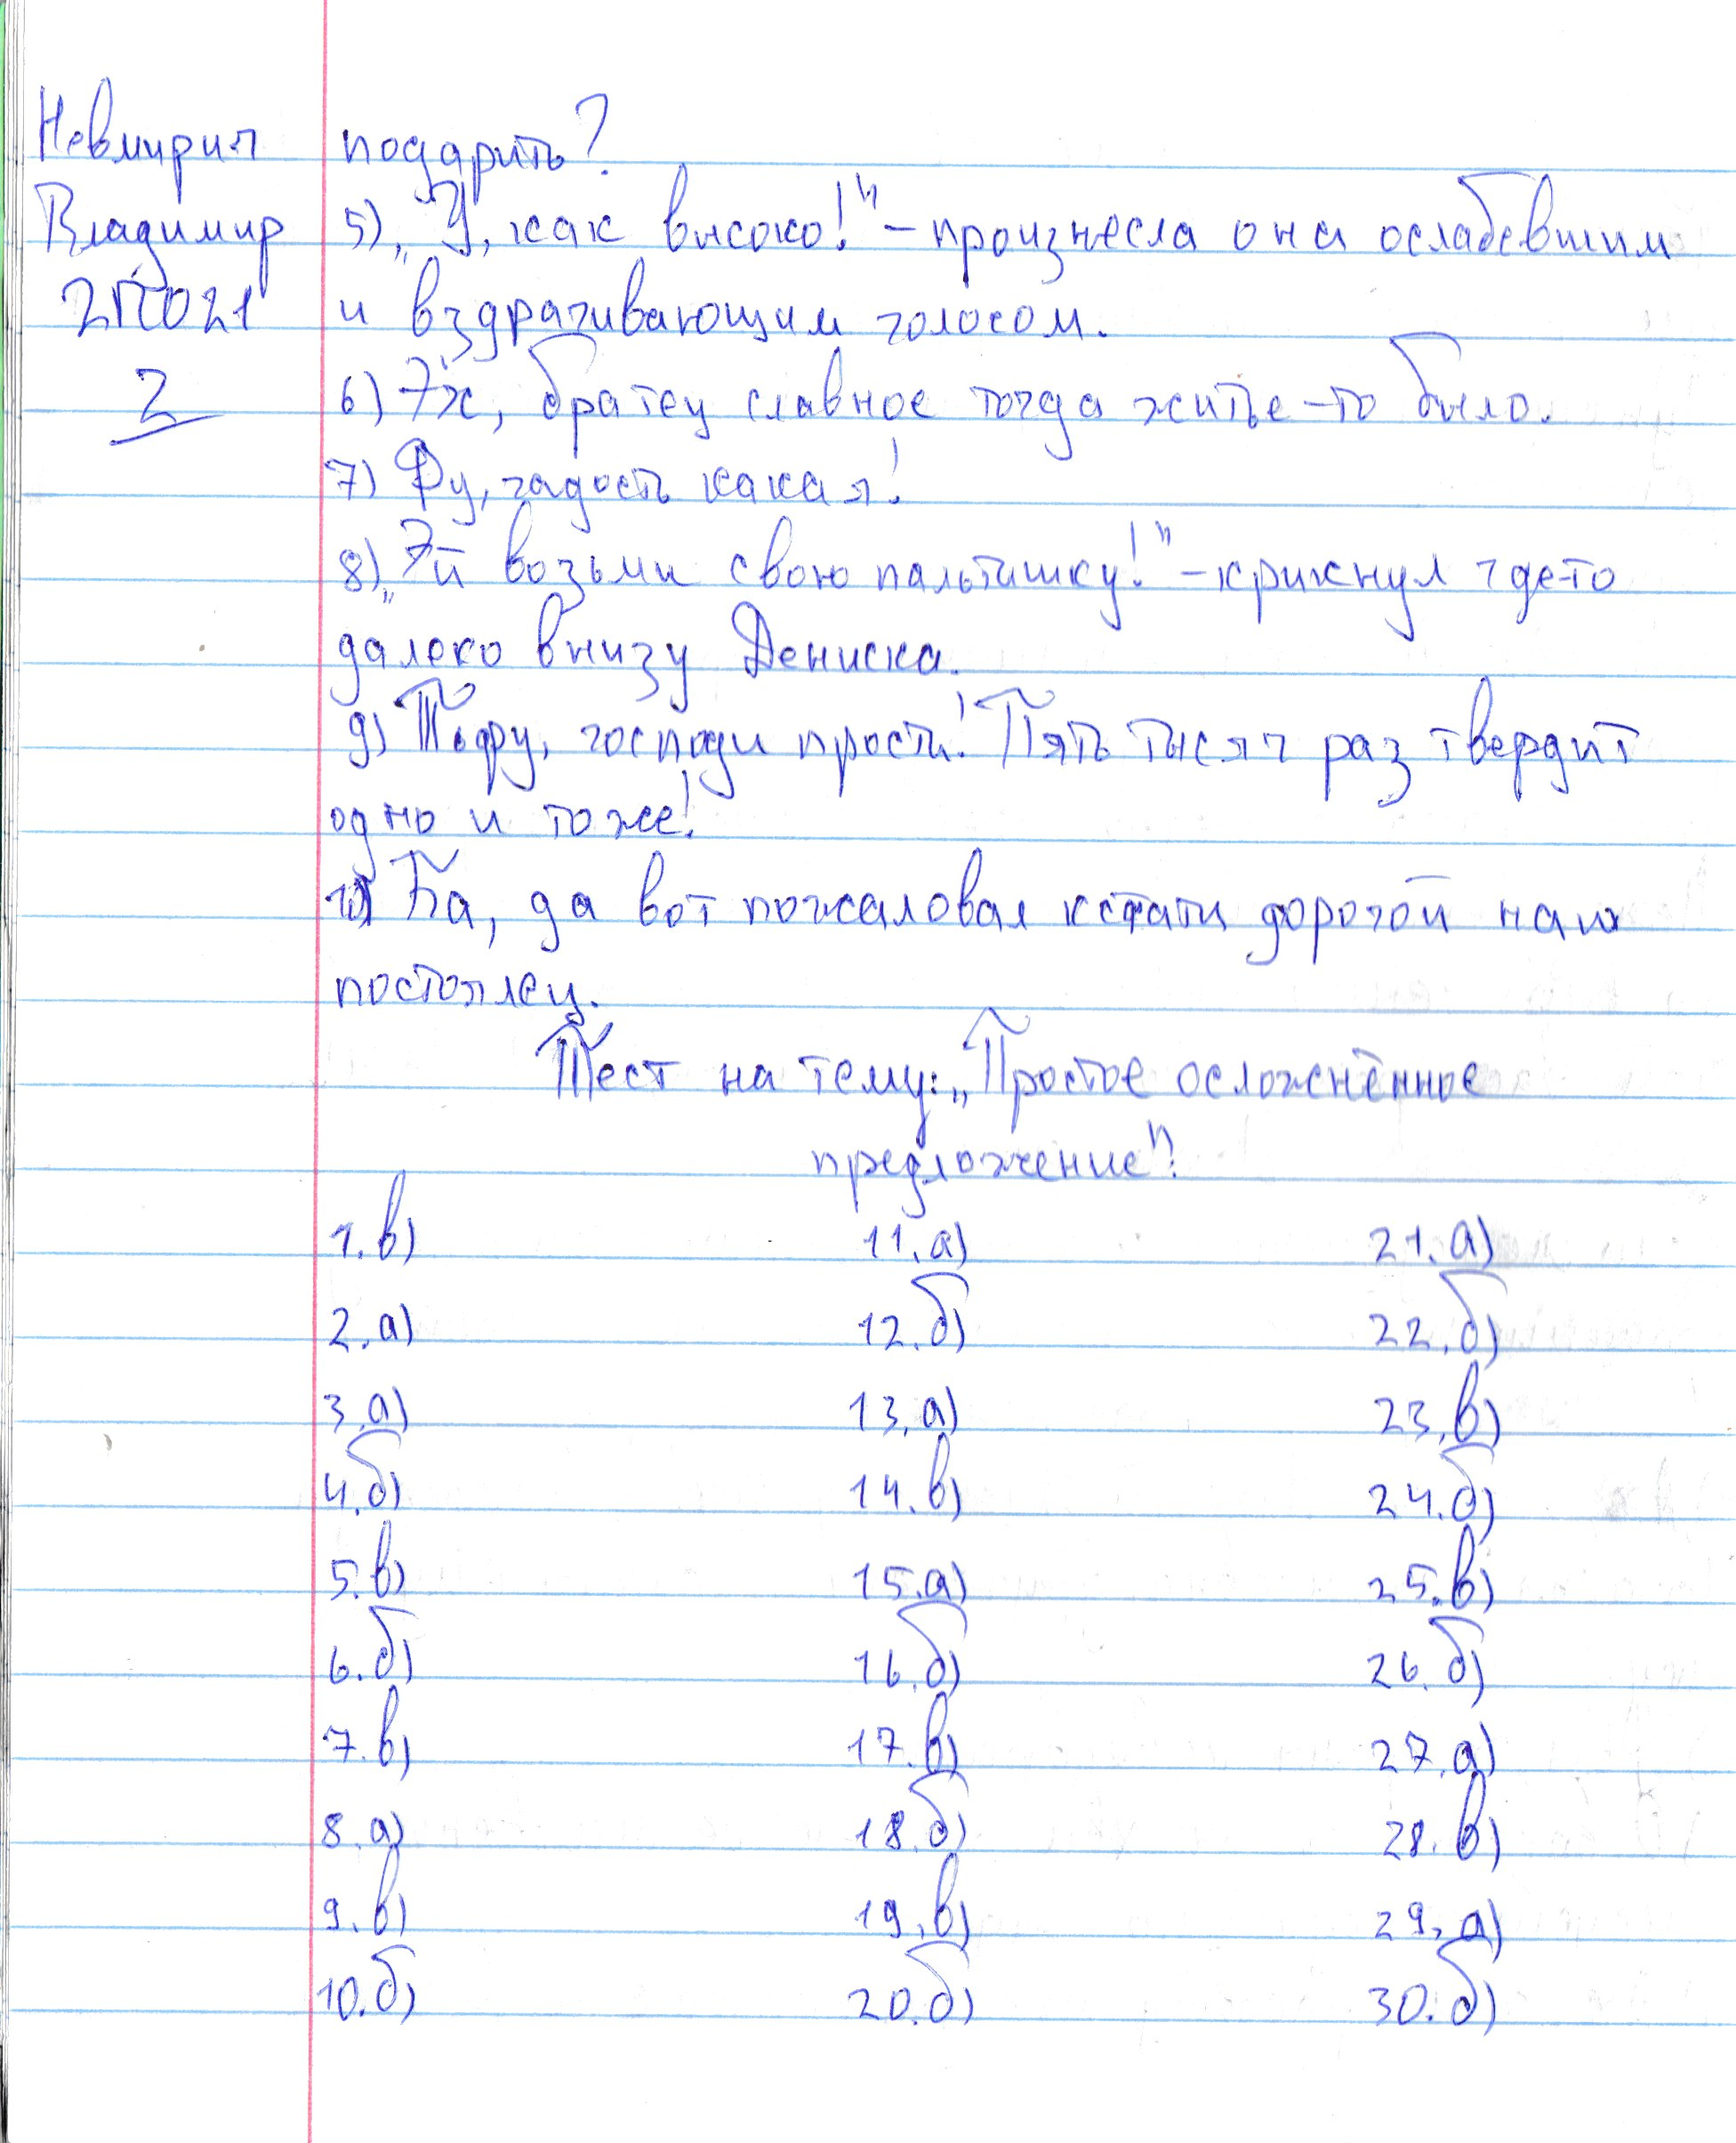 Невмирич
Владимир
2ПО21
2
подарить?
5) „У, как высоко!" – произнесла она ослабевшим
и вздрагивающим голосом.
6) Эх, братец славное тогда житье-то было.
7) Фу, гадость какая!
8) „Эй возьми свою пальтишку!" – крикнул где-то
далеко внизу Дениска.
9) Тьфу, господи прости! Пять тысяч раз твердит
одно и тоже!
10) Ба, да вот пожаловал кстати дорогой наш
постоялец.
Тест на тему: „Простое осложнённое
предложение":
1. в) 11. а) 21. а)
2. а) 12. б) 22. б)
3. а) 13. а) 23. в)
4. б) 14. в) 24. б)
5. в) 15. а) 25. в)
6. б) 16. б) 26. б)
7. в) 17. в) 27. а)
8. а) 18. б) 28. в)
9. в) 19. в) 29. а)
10. б) 20. б) 30. б)